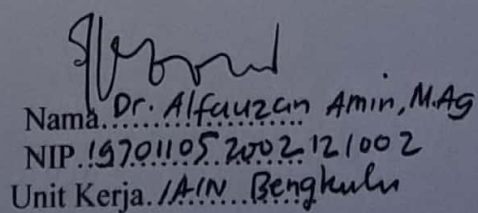 Nama. Dr. Alfauzan Amin, M.Ag
NIP. 19701105 2002 121002
Unit Kerja. IAIN Bengkulu